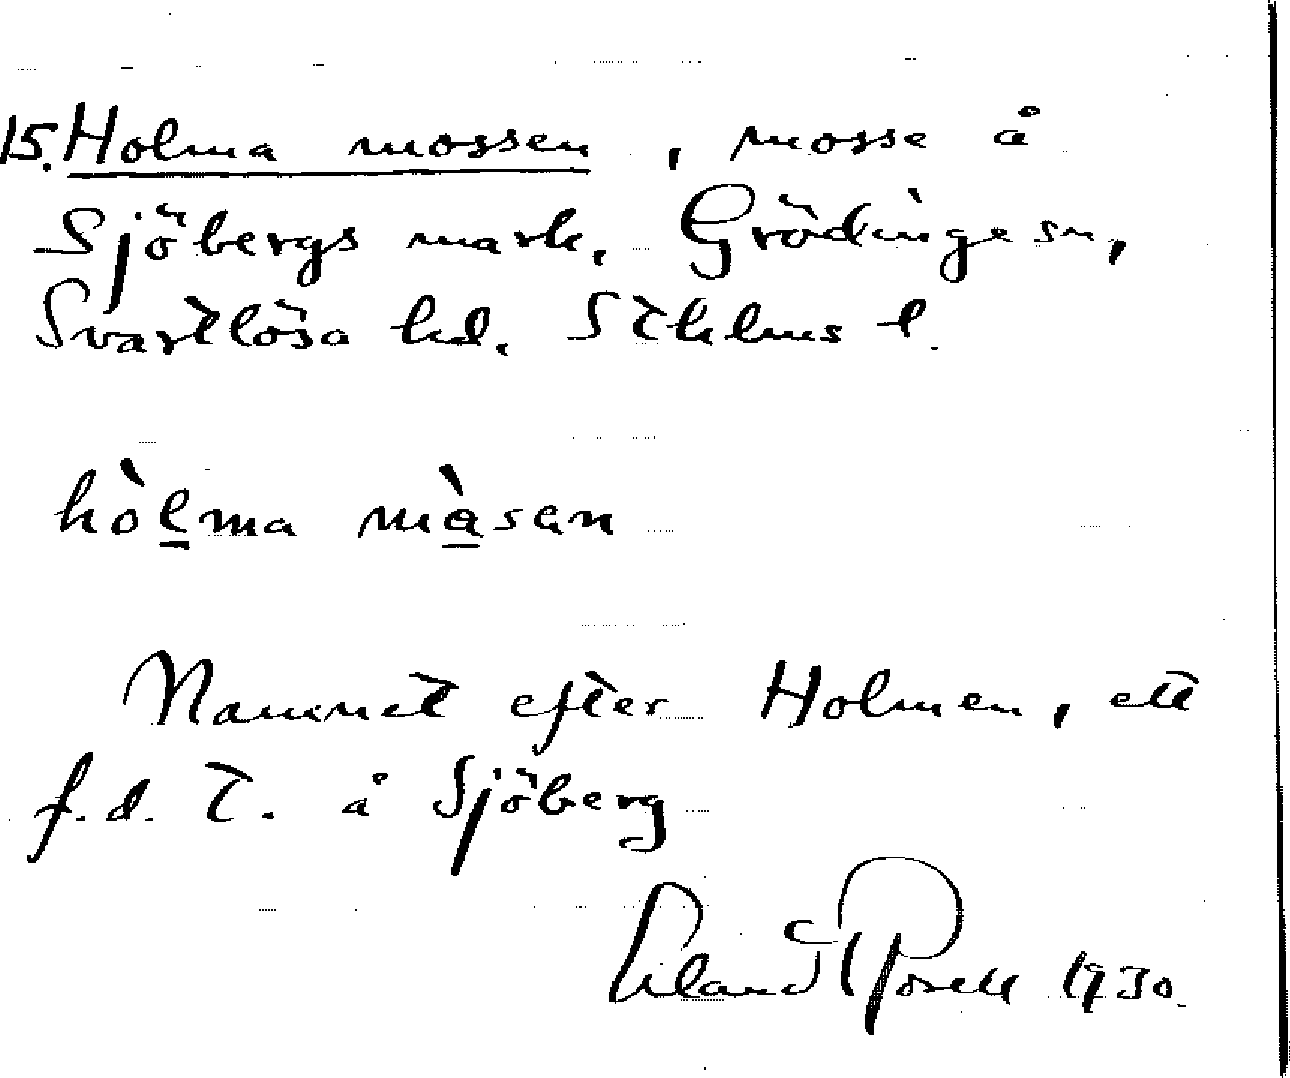 15. Holma mossen, mosse å
Sjöbergs mark, Grödinge sn,
Svartlösa hd. Sthlms l.
hòl̲ma mà̲san
Namnet efter Holmen, ett
f.d. t. å Sjöberg
Erland Rosell 1930.